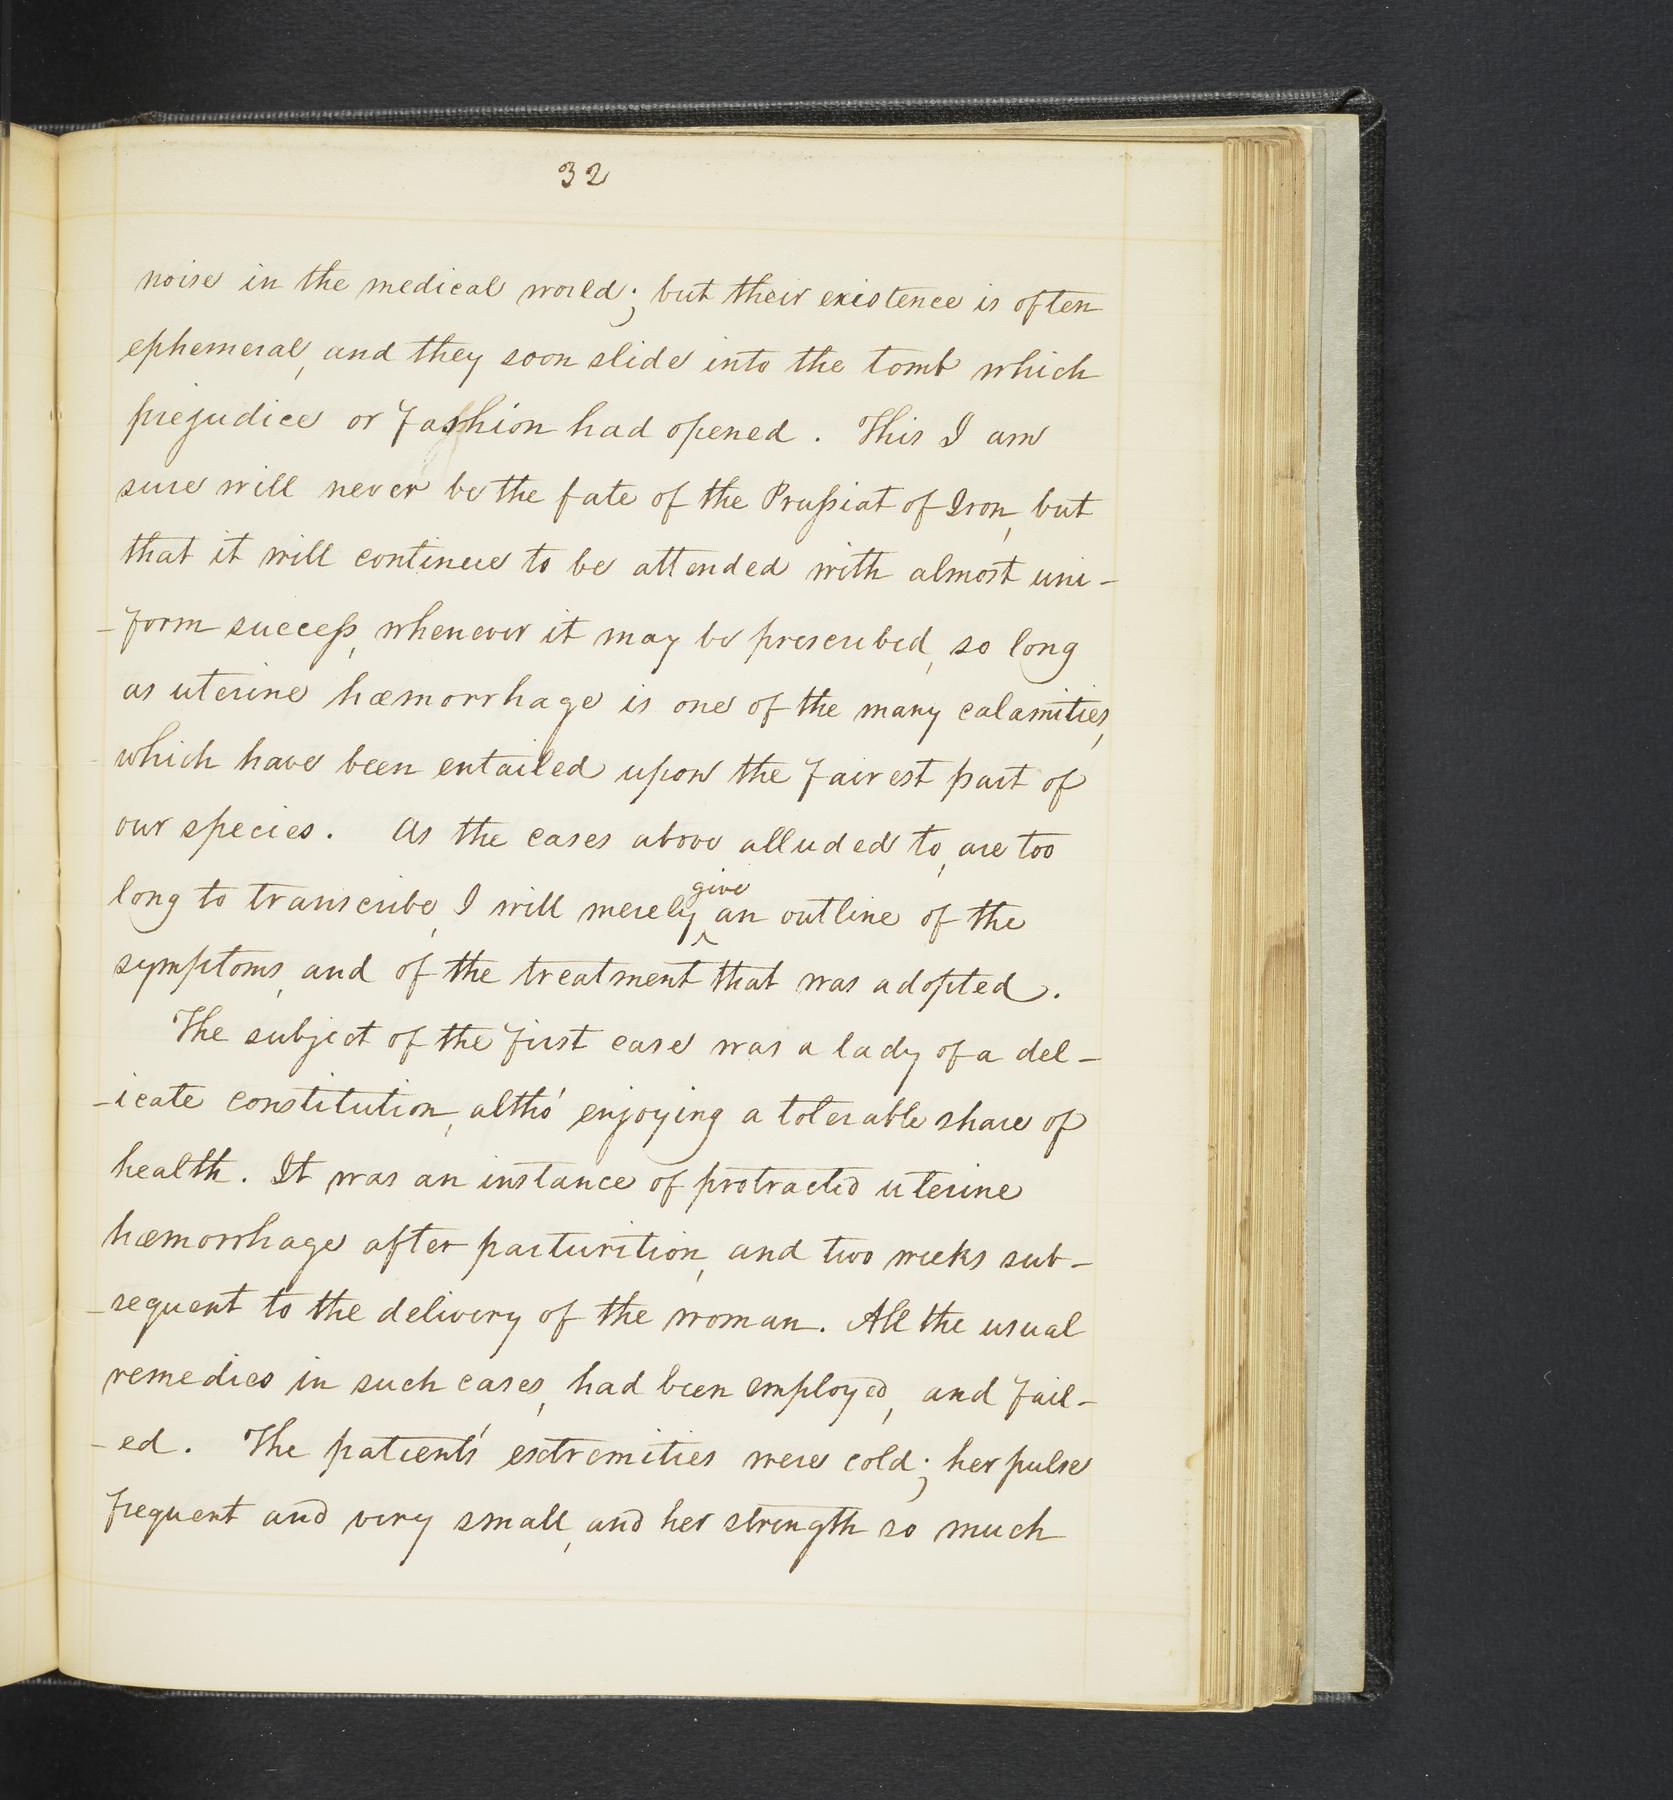 32
noise in the medical world; but their existence is often
ephemeral, and they soon slide into the tomb which
prejudice or fashion had opened. This I am
sure will never be the fate of the Prußiat of Iron, but
that it will continue to be attended with almost uni-
-form succeß, whenever it may be prescribed, so long
as uterine hæmorrhage is one of the many calamities,
which have been entailed upon the fairest part of
our species. As the cases above alluded to, are too
give
long to transcribe, I will merely ‸ an outline of the
symptoms, and of the treatment that was adopted.
The subject of the first case was a lady of a del-
-icate constitution, altho' enjoying a tolerable share of
health. It was an instance of protracted uterine
hæmorrhage after parturition, and two weeks sub-
-sequent to the delivery of the woman. All the usual
remedies in such cases, had been employed, and fail-
-ed. The patient's extremities were cold; her pulse
frequent and very small, and her strength so much